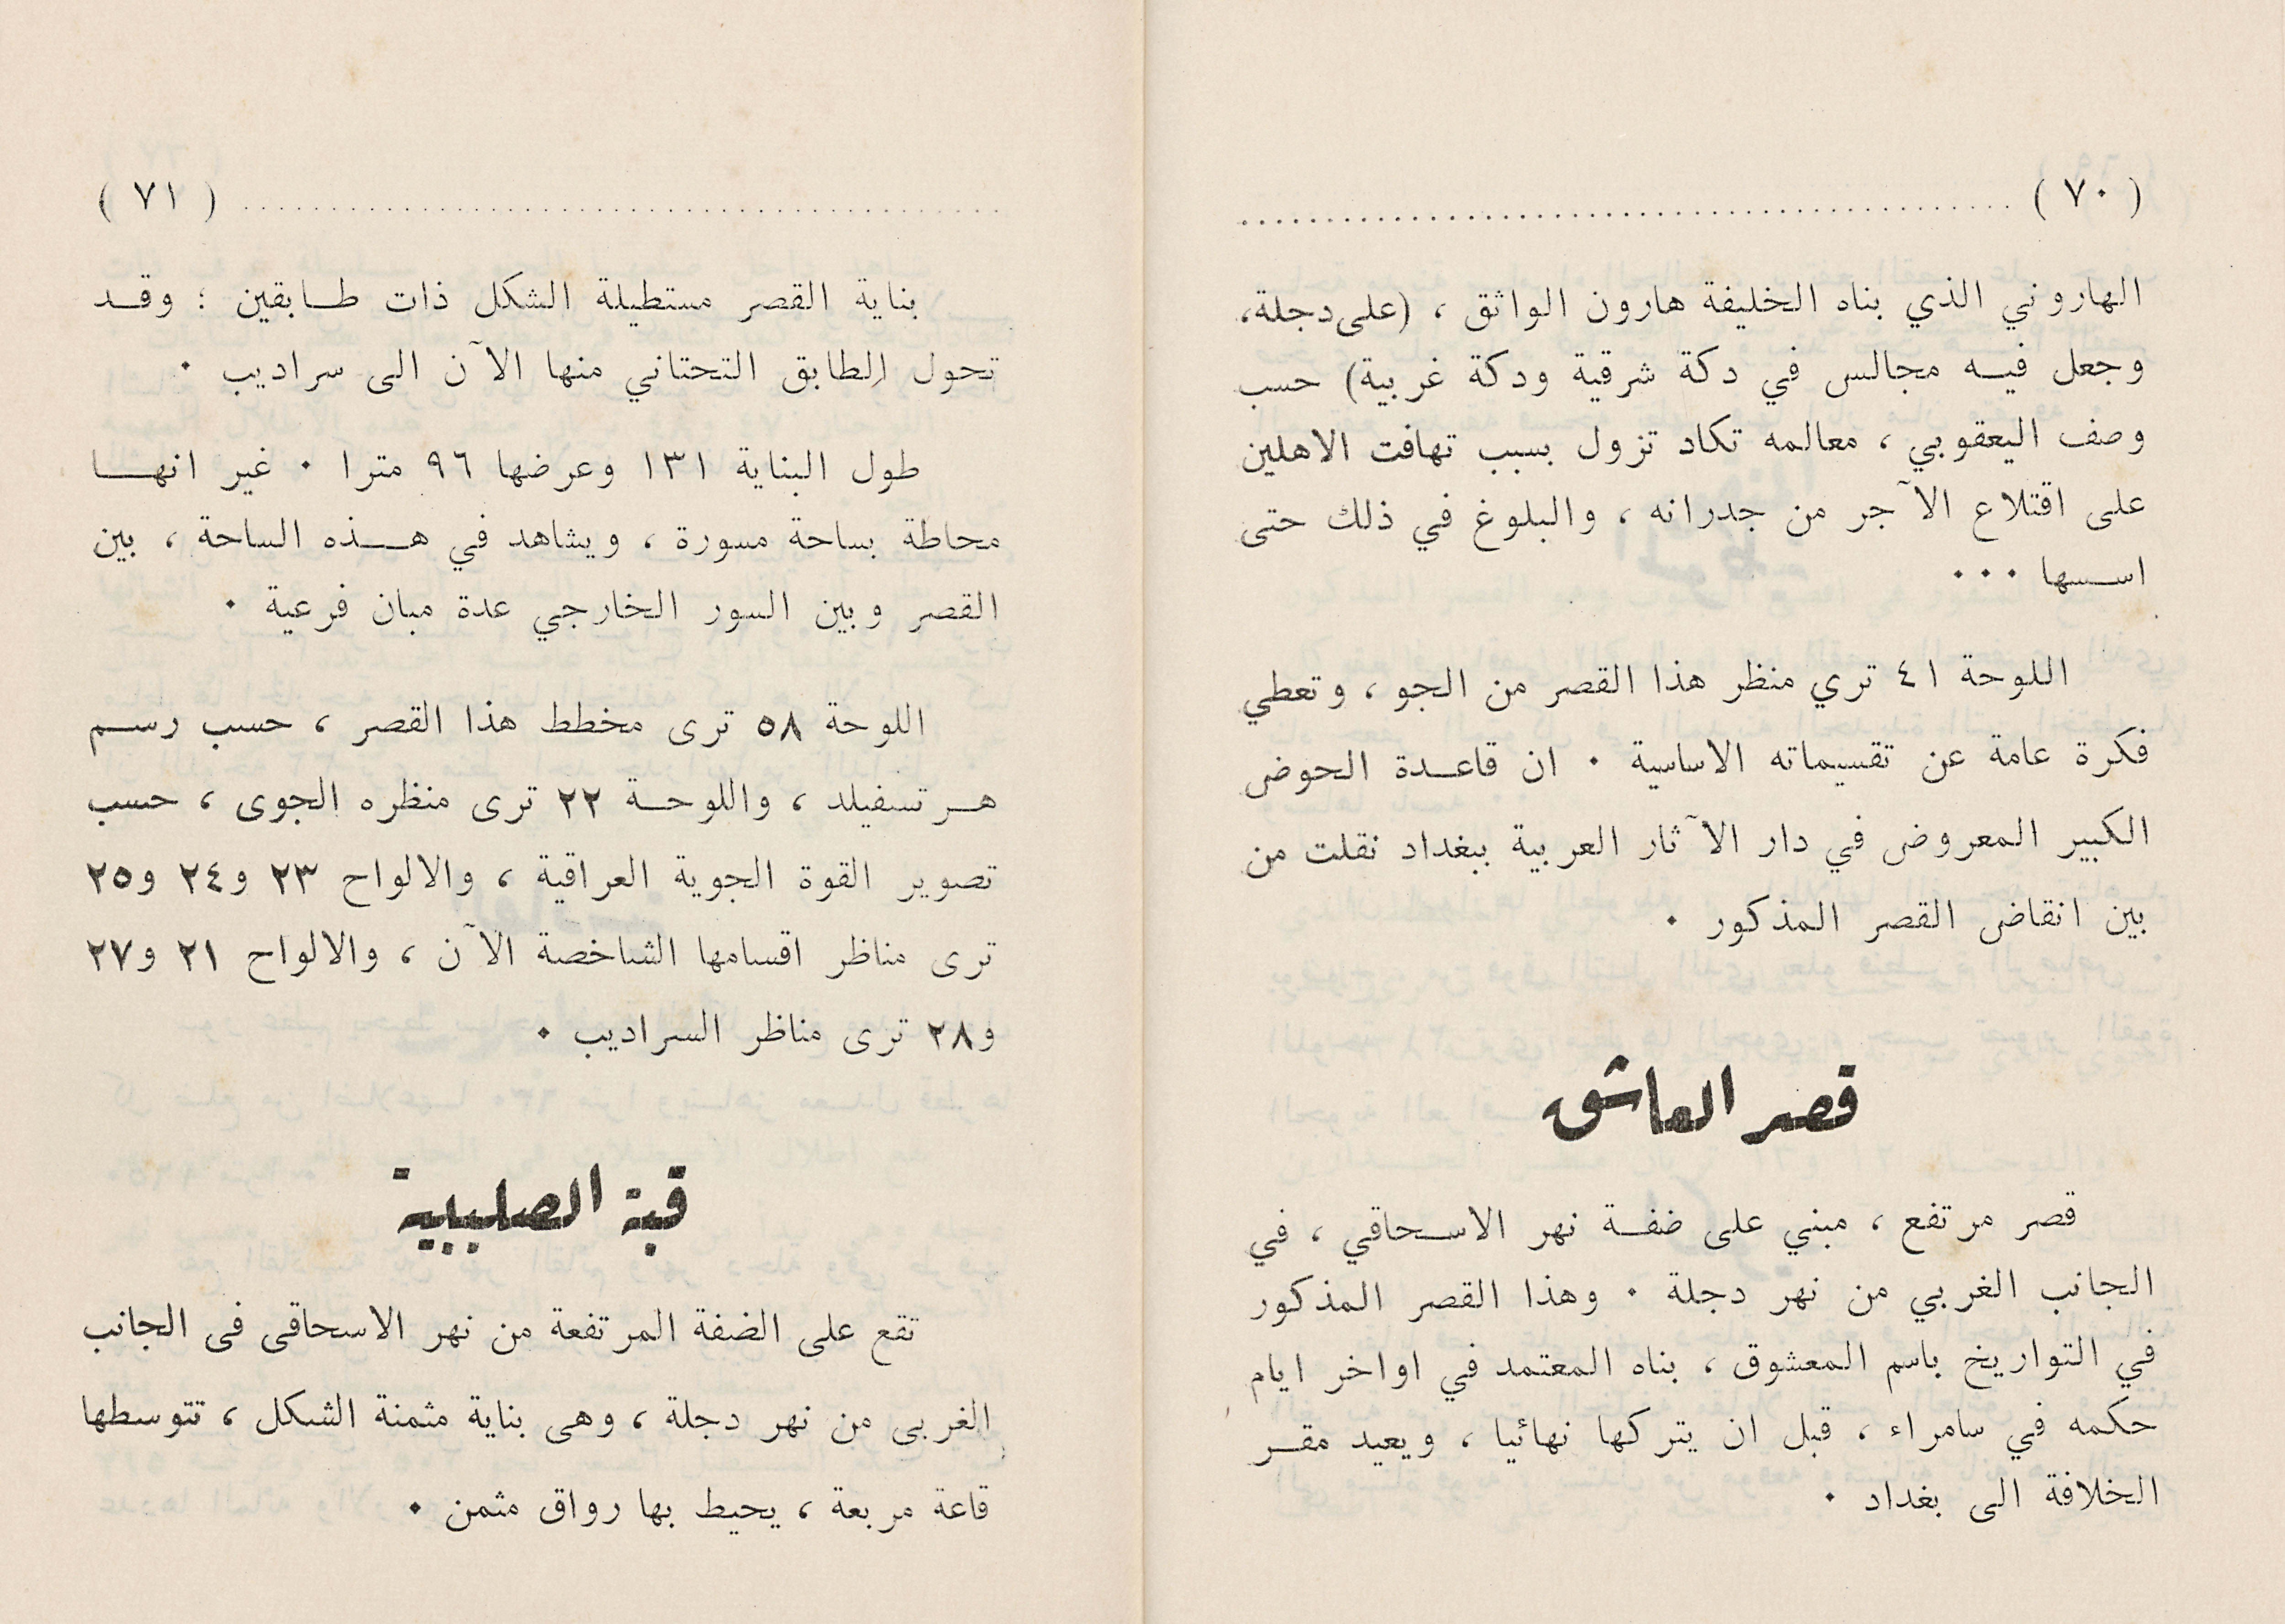 ( ٧٠ )
الهاروني الذي بناه الخليفة هارون الواثق ، (على دجلة،
وجعل فيه مجالس في دكة شرقية ودكة غربية) حسب
وصف اليعقوبي ، معالمه تكاد تزول بسبب تهافت الاهلين
على اقتلاع الآجر من جدرانه ، والبلوغ في ذلك حتى
اسسها ٠٠٠
اللوحة ٤١ تري منظر هذا القصر من الجو ، وتعطي
فكرة عامة عن تقسيماته الاساسية ٠ ان قاعدة الحوض
الكبير المعروض في دار الآثار العربية ببغداد نقلت من
بين انقاض القصر المذكور ٠
قصر العاشق
قصر مرتفع ، مبني على ضفة نهر الاسحاقي ، في
الجانب الغربي من نهر دجلة ٠ وهذا القصر المذكور
في التواريخ باسم المعشوق ، بناه المعتمد في اواخر ايام
حكمه في سامراء ، قبل ان يتركها نهائيا ، ويعيد مقر
الخلافة الى بغداد ٠
( ٧١ )
بناية القصر مستطيلة الشكل ذات طابقين ؛ وقد
تحول الطابق التحتاني منها الآن الى سراديب ٠
طول البناية ١٣١ وعرضها ٩٦ مترا ٠ غير انها
محاطة بساحة مسورة ، ويشاهد في هذه الساحة ، بين
القصر وبين السور الخارجي عدة مبان فرعية ٠
اللوحة ٥٨ ترى مخطط هذا القصر ، حسب رسم
هرتسفيلد ، واللوحة ٢٢ ترى منظره الجوى ، حسب
تصوير القوة الجوية العراقية ، والالواح ٢٣ و٢٤ و٢٥
ترى مناظر اقسامها الشاخصة الآن ، والالواح ٢١ و٢٧
و٢٨ ترى مناظر السراديب ٠
قبة الصليبية
تقع على الضفة المرتفعة من نهر الاسحاقى فى الجانب
الغربى من نهر دجلة ، وهى بناية مثمنة الشكل ، تتوسطها
قاعة مربعة ، يحيط بها رواق مثمن ٠